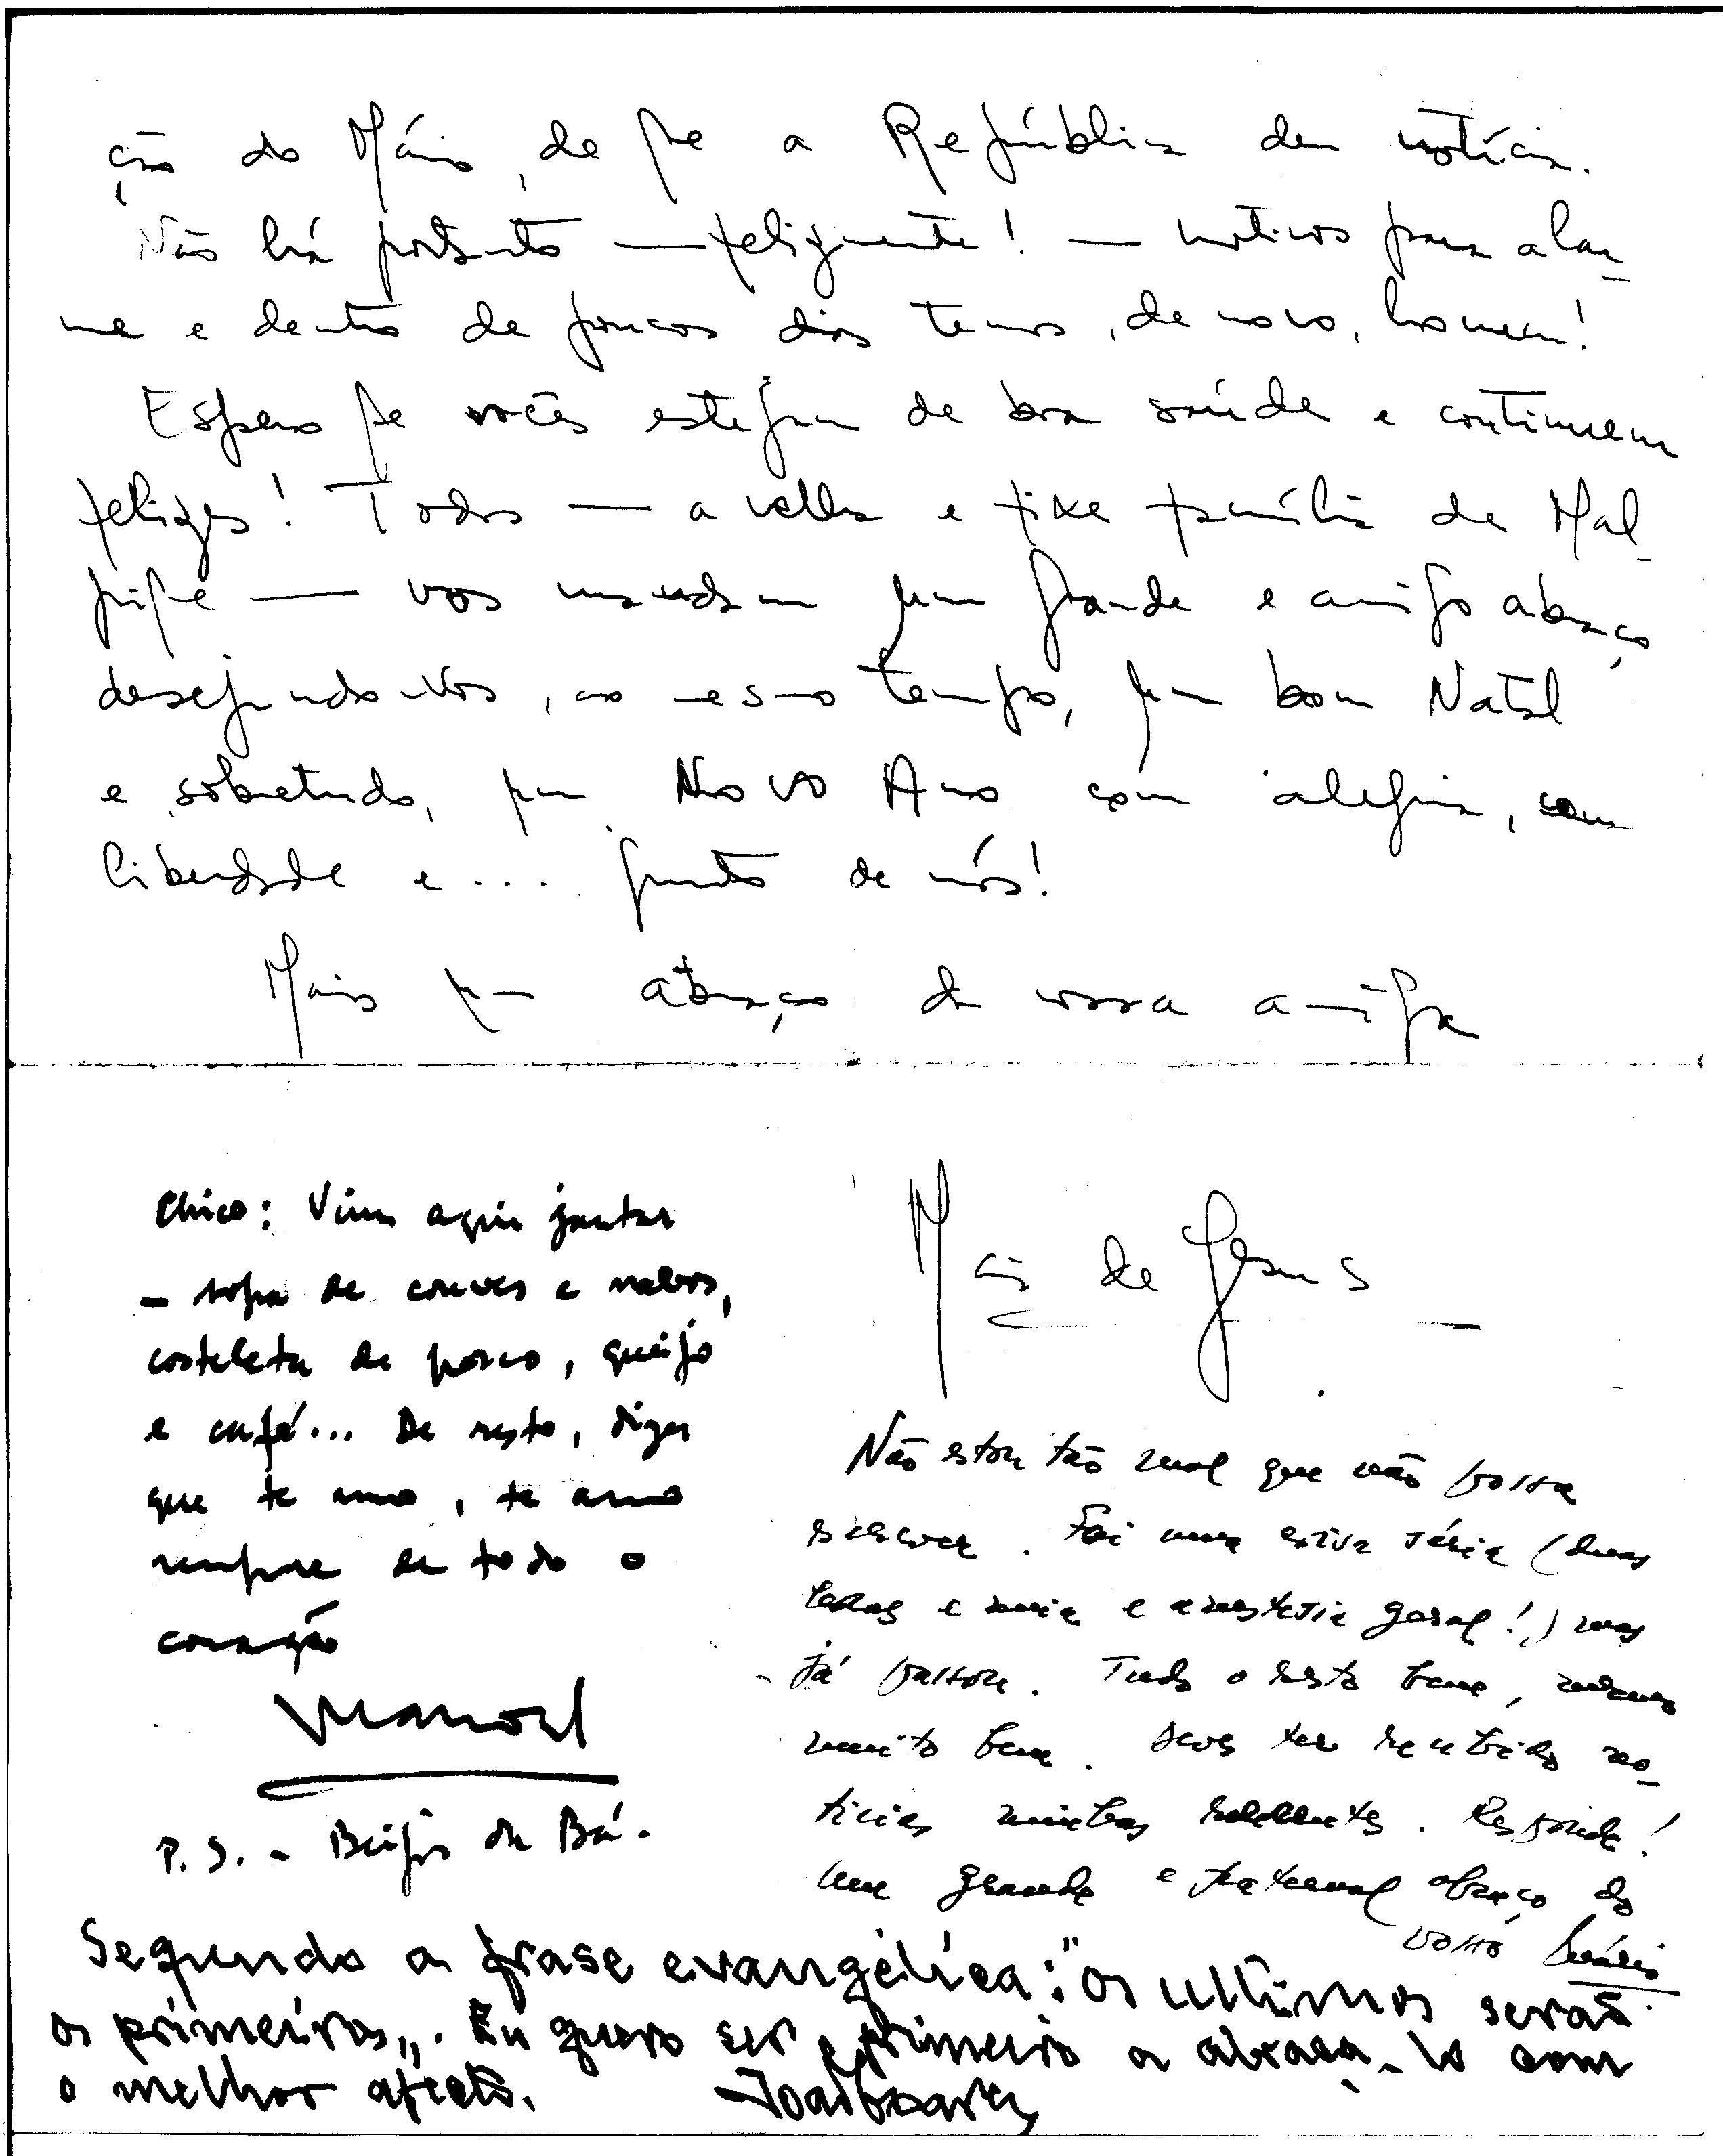 ção do Mário, de que a República deu notícia.
Não há portanto — felizmente! — motivos para alar-
me e dentro de poucos dias temos, de novo, homem!
Espero que vocês estejam de boa saúde e continuem
felizes! Todos — a velha e fixe família de Mal-
pique — vos mandam um grande e amigo abraço
desejando-vos, ao mesmo tempo, um bom Natal
e, sobretudo, um Novo Ano com alegria, com
liberdade e... junto de nós!
Mais um abraço da vossa amiga
Mª de Jesus
Chico: Vim aqui jantar
– sopa de couves e nabos,
costeleta de porco, queijo
e café... De resto, dizer
que te amo, te amo
sempre de todo o
coração
Manoel
P.S. – Beijos da Bá.
Não estou tão mal que não possa
escrever. Foi uma coisa séria (duas
horas e meia e anestesia geral!) mas
já passou. Tudo o resto bem,
muito bem. Deves ter recebido no-
tícias minhas. Responde!
Um grande e fraternal abraço do
vosso Mário
Segundo a frase evangélica: "os ultimos serão
os primeiros". Eu quero ser o primeiro a abraça-lo com
o melhor afecto. João Soares